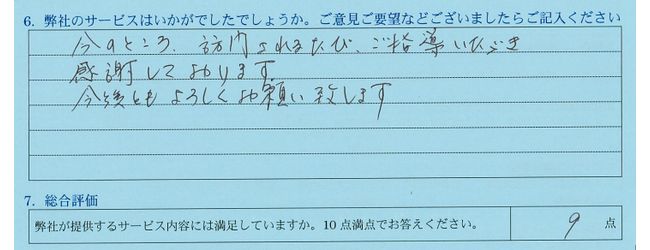 6. 弊社のサービスはいかがでしたでしょうか。ご意見ご要望などございましたらご記入ください
今のところ、訪門されるたび、ご指導いただき
感謝しております。
今後ともよろしくお願い致します
7. 総合評価
弊社が提供するサービス内容には満足していますか。10点満点でお答えください。 9 点